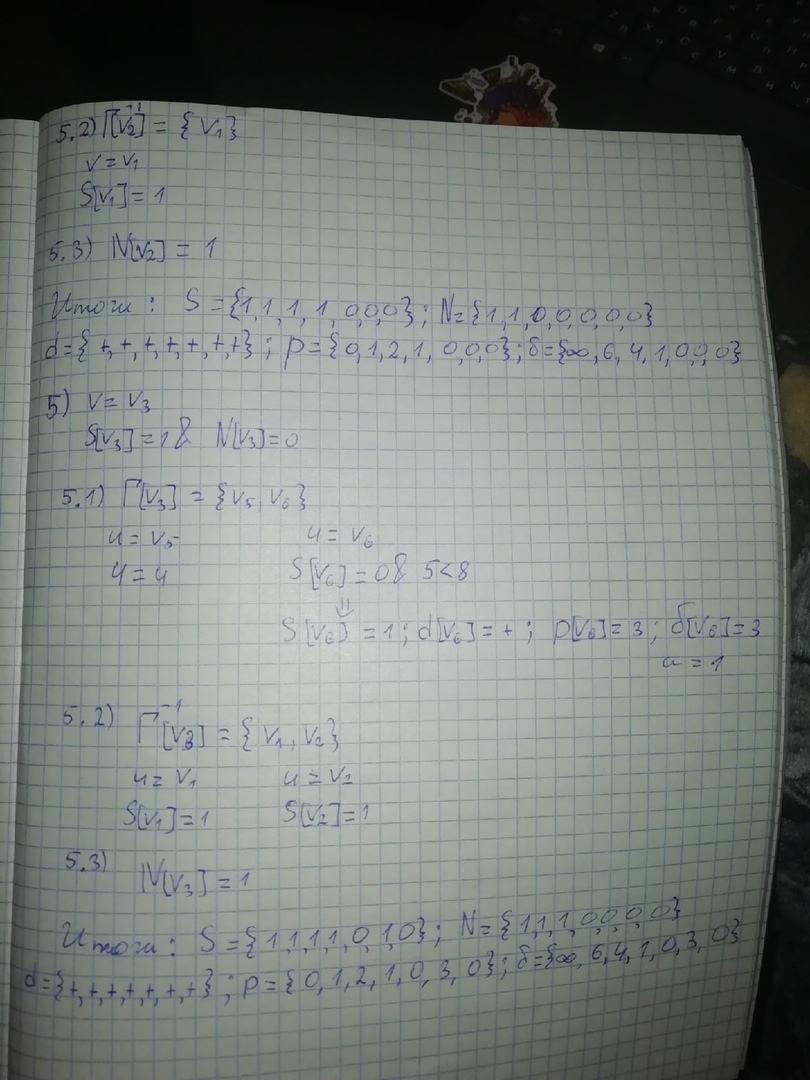 5.2) Γ⁻¹[v₂] = {v₁}
v = v₁
S[v₁] = 1
5.3) N[v₂] = 1
Итоги: S = {1,1,1,1,0,0,0}; N = {1,1,0,0,0,0,0}
d = {+,+,+,+,+,+,+}; p = {0,1,2,1,0,0,0}; δ = {∞,6,4,1,0,0,0}
5) v = v₃
S[v₃] = 1 & N[v₃] = 0
5.1) Γ[v₃] = {v₅, v₆}
u = v₅ u = v₆
4 = 4 S[v₆] = 0 & 5 < 8
⇓
S[v₆] = 1; d[v₆] = +; p[v₆] = 3; δ[v₆] = 3
a = 1
5.2) Γ⁻¹[v₃] = {v₁, v₂}
u = v₁ u = v₂
S[v₁] = 1 S[v₂] = 1
5.3) N[v₃] = 1
Итоги: S = {1,1,1,1,0,1,0}; N = {1,1,1,0,0,0,0}
d = {+,+,+,+,+,+,+}; p = {0,1,2,1,0,3,0}; δ = {∞,6,4,1,0,3,0}